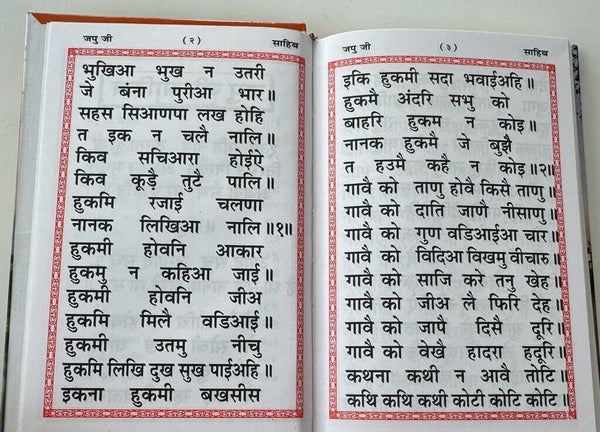 जपु जी (२) साहिब
भुखिआ भुख न उतरी
जे बंना पुरीआ भार॥
सहस सिआणपा लख होहि
त इक न चलै नालि॥
किव सचिआरा होईऐ
किव कूड़ै तुटै पालि॥
हुकमि रजाई चलणा
नानक लिखिआ नालि॥१॥
हुकमी होवनि आकार
हुकमु न कहिआ जाई॥
हुकमी होवनि जीअ
हुकमि मिलै वडिआई॥
हुकमी उतमु नीचु
हुकमि लिखि दुख सुख पाईअहि॥
इकना हुकमी बखसीस
जपु जी (३) साहिब
इकि हुकमी सदा भवाईअहि॥
हुकमै अंदरि सभु को
बाहरि हुकम न कोइ॥
नानक हुकमै जे बुझै
त हउमै कहै न कोइ॥२॥
गावै को ताणु होवै किसै ताणु॥
गावै को दाति जाणै नीसाणु॥
गावै को गुण वडिआईआ चार॥
गावै को विदिआ विखमु वीचारु॥
गावै को साजि करे तनु खेह॥
गावै को जीअ लै फिरि देह॥
गावै को जापै दिसै दूरि॥
गावै को वेखै हादरा हदूरि॥
कथना कथी न आवै तोटि॥
कथि कथि कथी कोटी कोटि कोटि॥